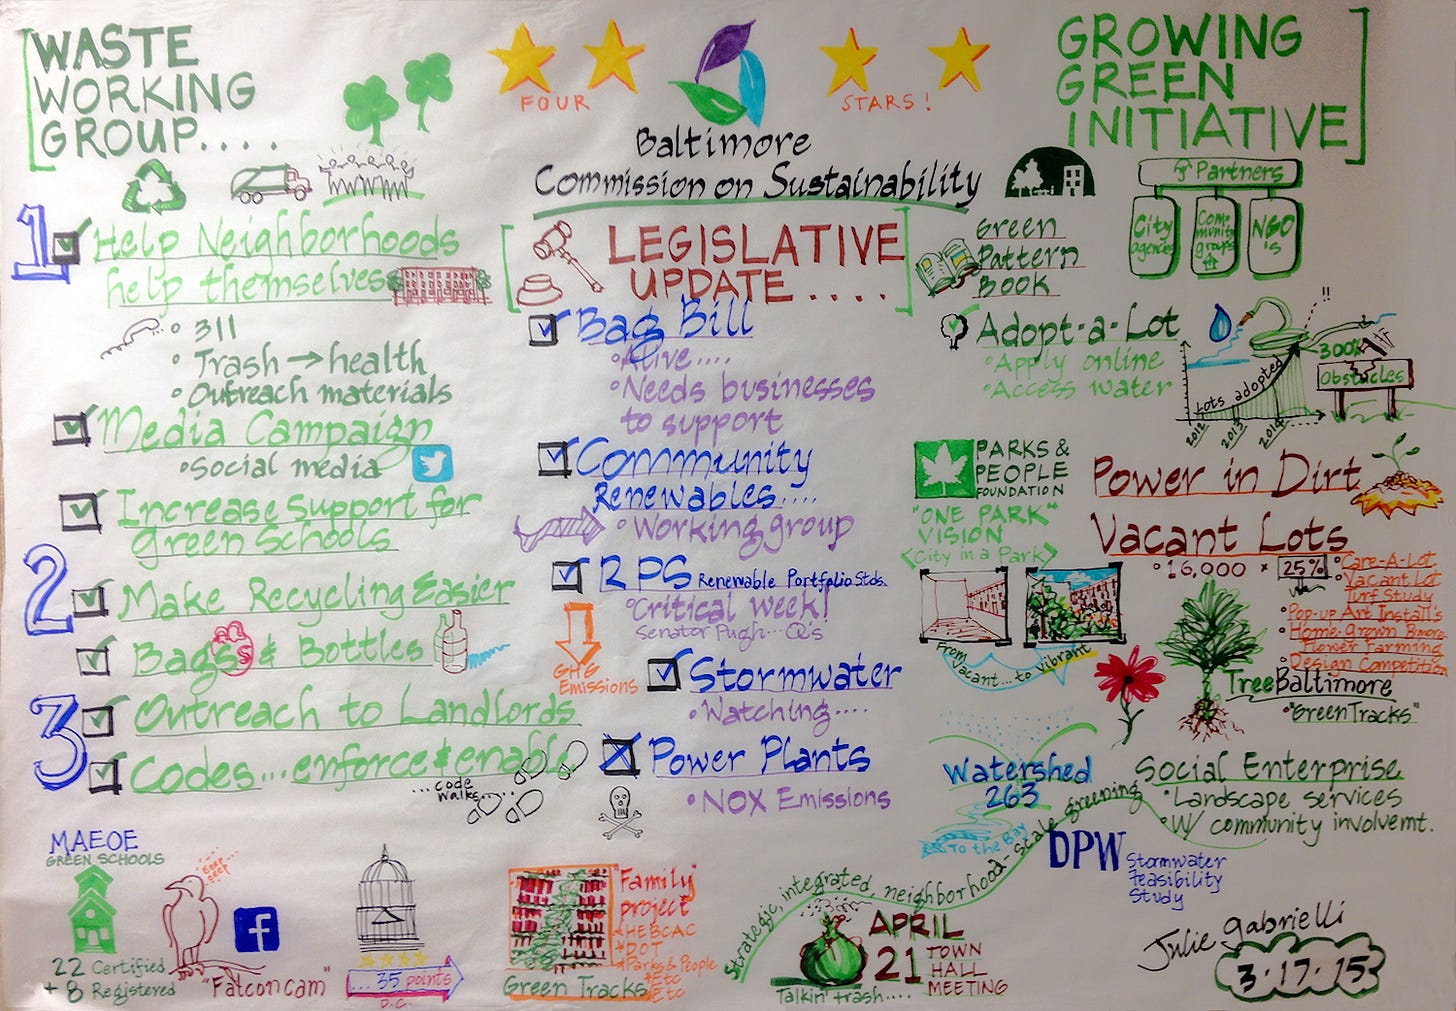 WASTE
WORKING
GROUP....
1
Help Neighborhoods
help themselves
311
Trash → health
Outreach materials
Media Campaign
Social media
Increase Support for
Green Schools
2
Make Recycling Easier
Bags & Bottles
3
Outreach to Landlords
Codes...enforce & enable
...code
walks.....
MAEOE
GREEN SCHOOLS
22 Certified
+ 8 Registered
Eeep
eeep
"Falcon cam"
... 35 points
D.C.
FOUR
STARS!
Baltimore
Commission on Sustainability
LEGISLATIVE
UPDATE....
Bag Bill
Alive....
Needs businesses
to support
Community
Renewables....
Working group
RPS Renewable Portfolio Stds.
Critical week!
Senator Pugh... Q's
GHG
Emissions
Stormwater
Watching....
Power Plants
NOX Emissions
"Family"
project
+ HEBCAC
+ DOT
+ Parks & People
+ Etc
Etc
Green Tracks
Strategic, integrated, neighborhood-scale greening
APRIL
21
TOWN
HALL
MEETING
Talkin' trash....
GROWING
GREEN
INITIATIVE
Green
Pattern
Book
Partners
City
agencies
Com-
munity
groups
NGO
's
Adopt-a-Lot
Apply online
Access water
Lots adopted
2012
2013
2014
!!
300%
Obstacles
PARKS &
PEOPLE
FOUNDATION
"ONE PARK"
VISION
<City in a Park>
From
vacant... to vibrant
Power in Dirt
Vacant Lots
16,000 * 25%
Care-A-Lot
Vacant Lot
Turf Study
Pop-up Art Install's
Home-grown Bmore
Flower Farming
Design Competition
TreeBaltimore
"GreenTracks"
Watershed
263
To the Bay
Social Enterprise
Landscape services
W/ community involvemt.
DPW
Stormwater
feasibility
Study
Julie Gabrielli
3.17.15